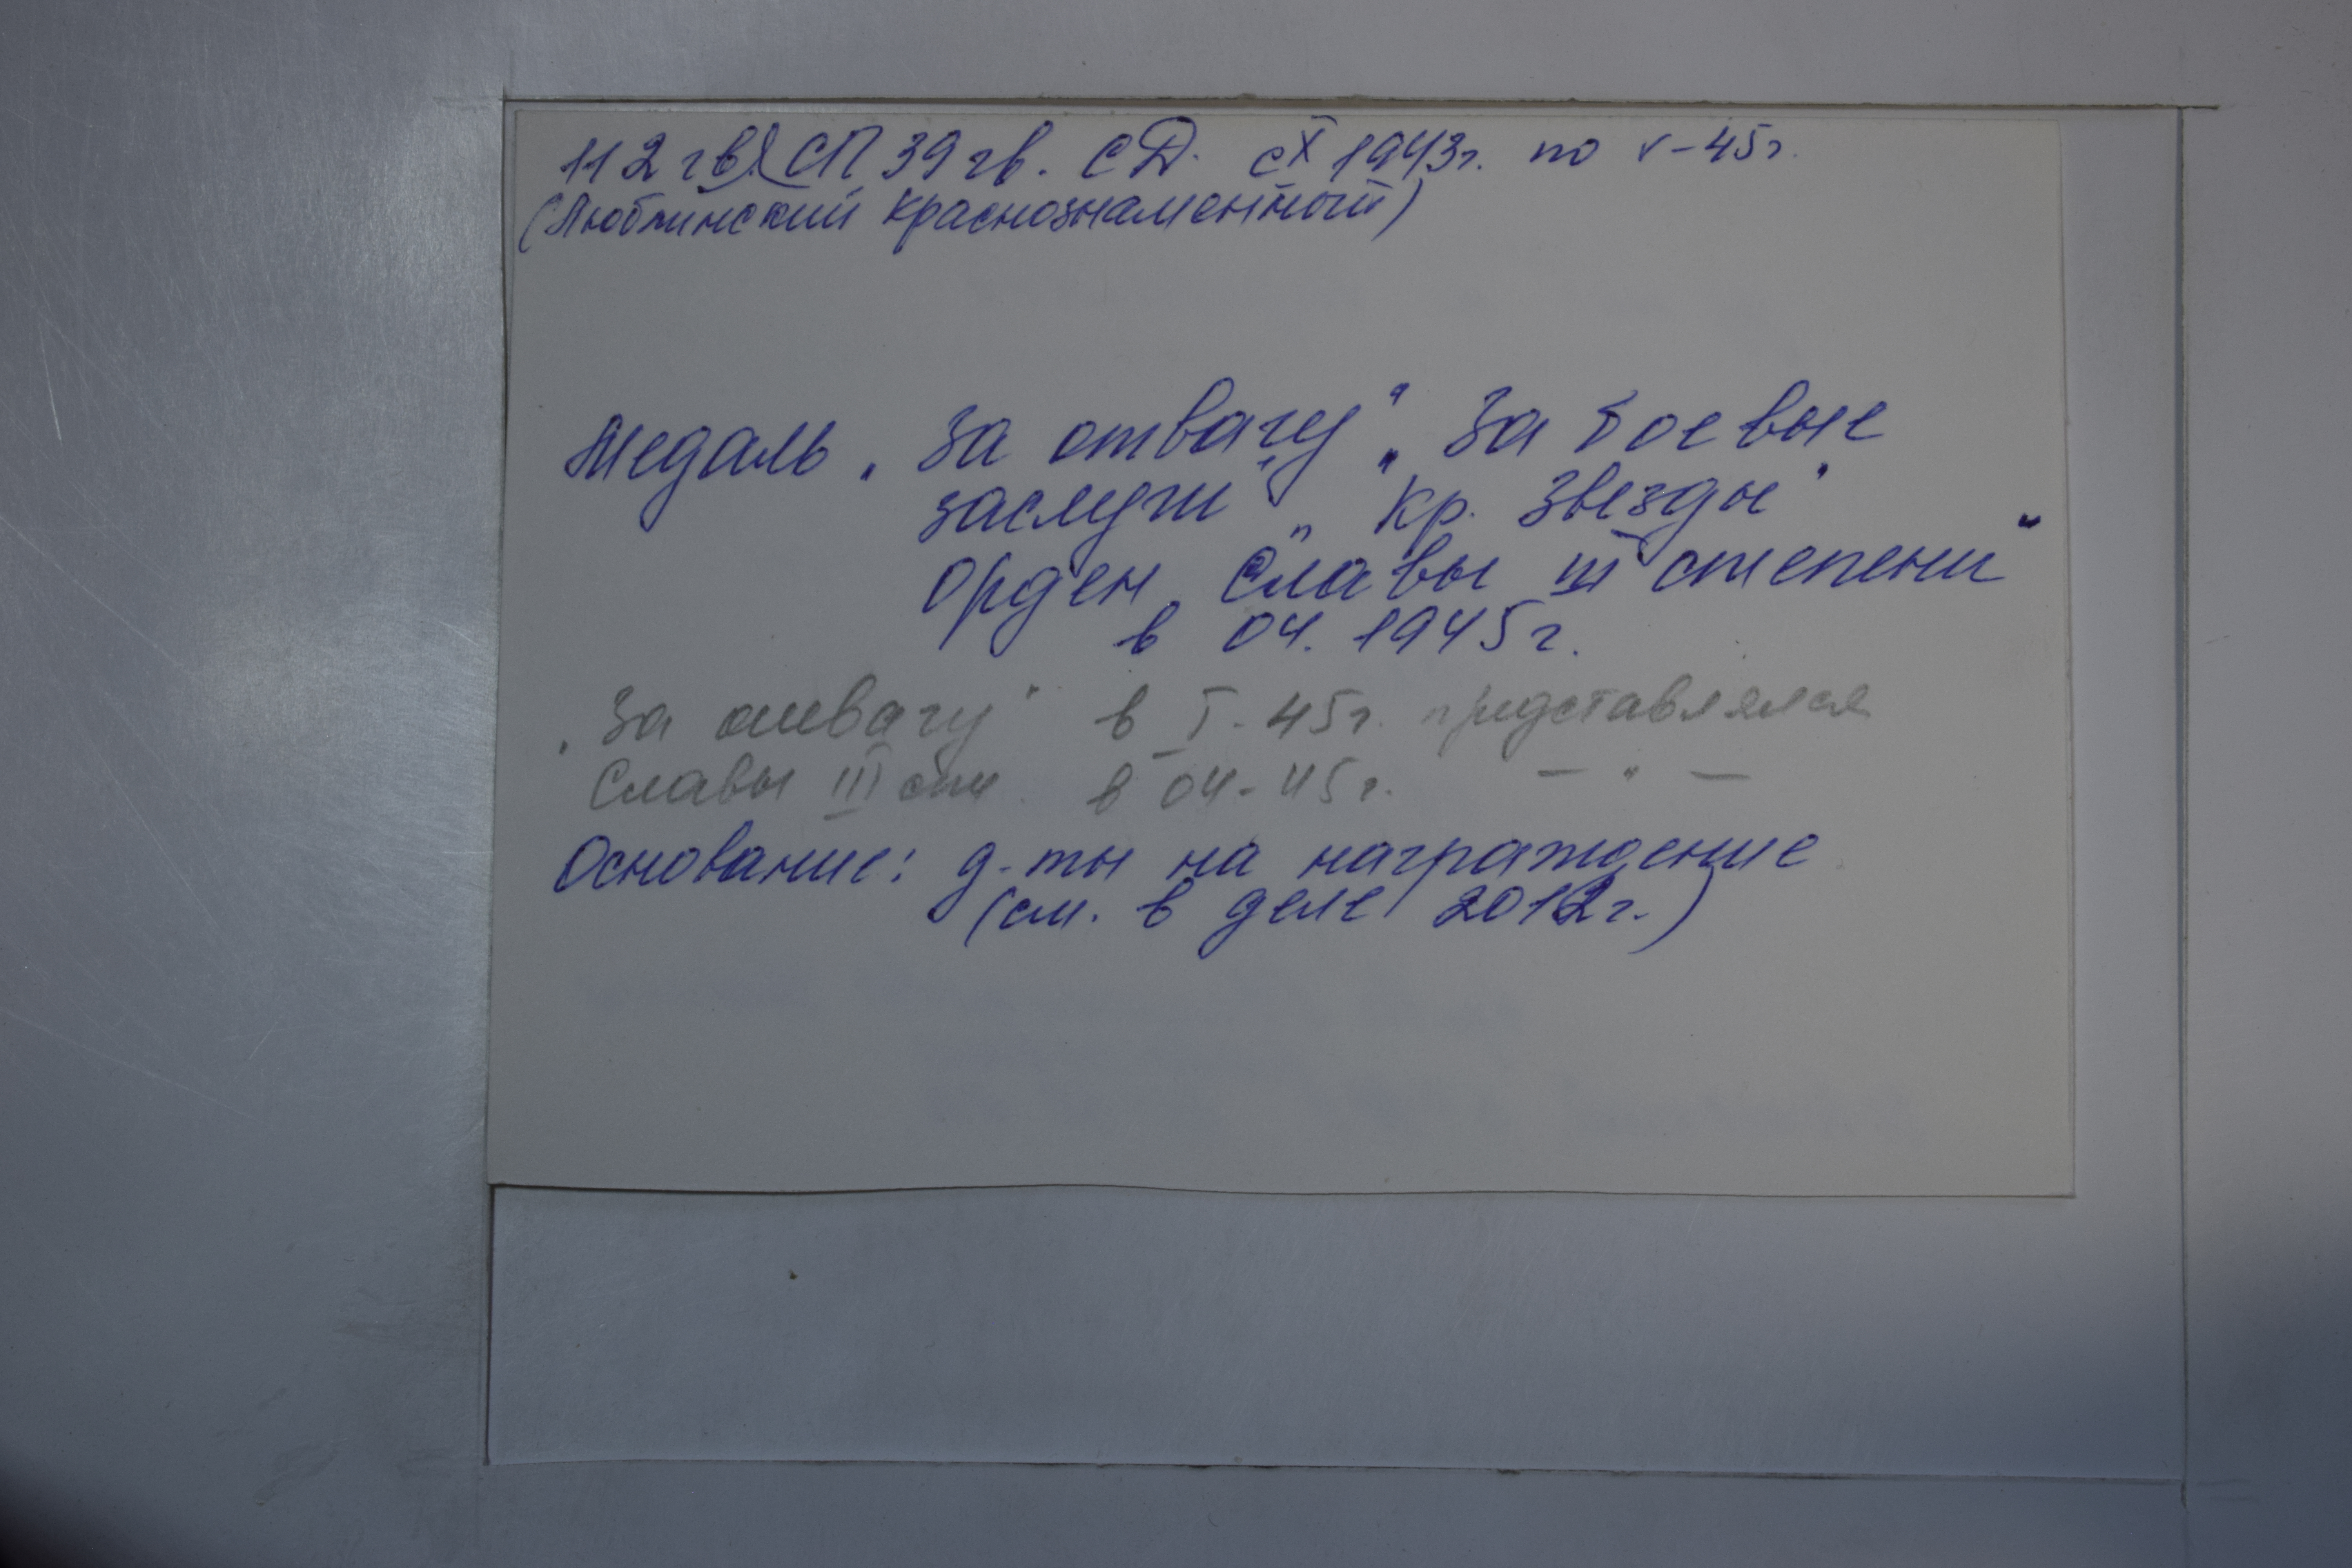 112 гв. СП 39 гв. СД. с X 1943г. по V-45г.
(Люблинский краснознаменный)
Медаль „За отвагу" „За боевые
заслуги" „Кр. Звезды"
Орден „Славы III степени"
в 04. 1945г.
„За отвагу" в I-45г. представлялся
Славы III ст. в 04-45г. — " —
Основание: д-ты на награждение
(см. в деле 2012г.)